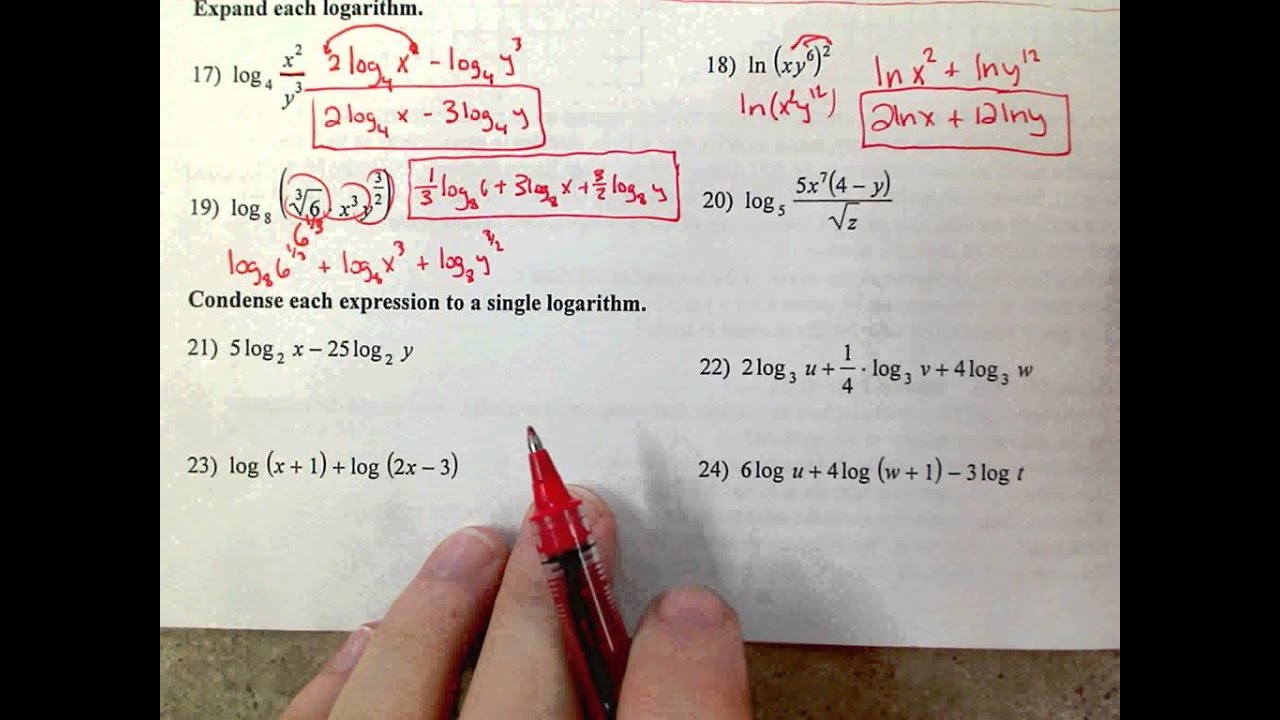 Expand each logarithm.
17) log₄ x²/y³ 2log₄x - log₄y³
2log₄x - 3log₄y
18) ln (xy⁶)² lnx² + lny¹²
ln(x²y¹²) 2lnx + 12lny
19) log₈ (∛6 · x³y^(3/2)) 1/3 log₈6 + 3log₈x + 3/2 log₈y
6^(1/3)
log₈6^(1/3) + log₈x³ + log₈y^(3/2)
20) log₅ 5x⁷(4 − y)/√z
Condense each expression to a single logarithm.
21) 5log₂ x − 25log₂ y
22) 2log₃ u + 1/4 · log₃ v + 4log₃ w
23) log (x + 1) + log (2x − 3)
24) 6log u + 4log (w + 1) − 3log t